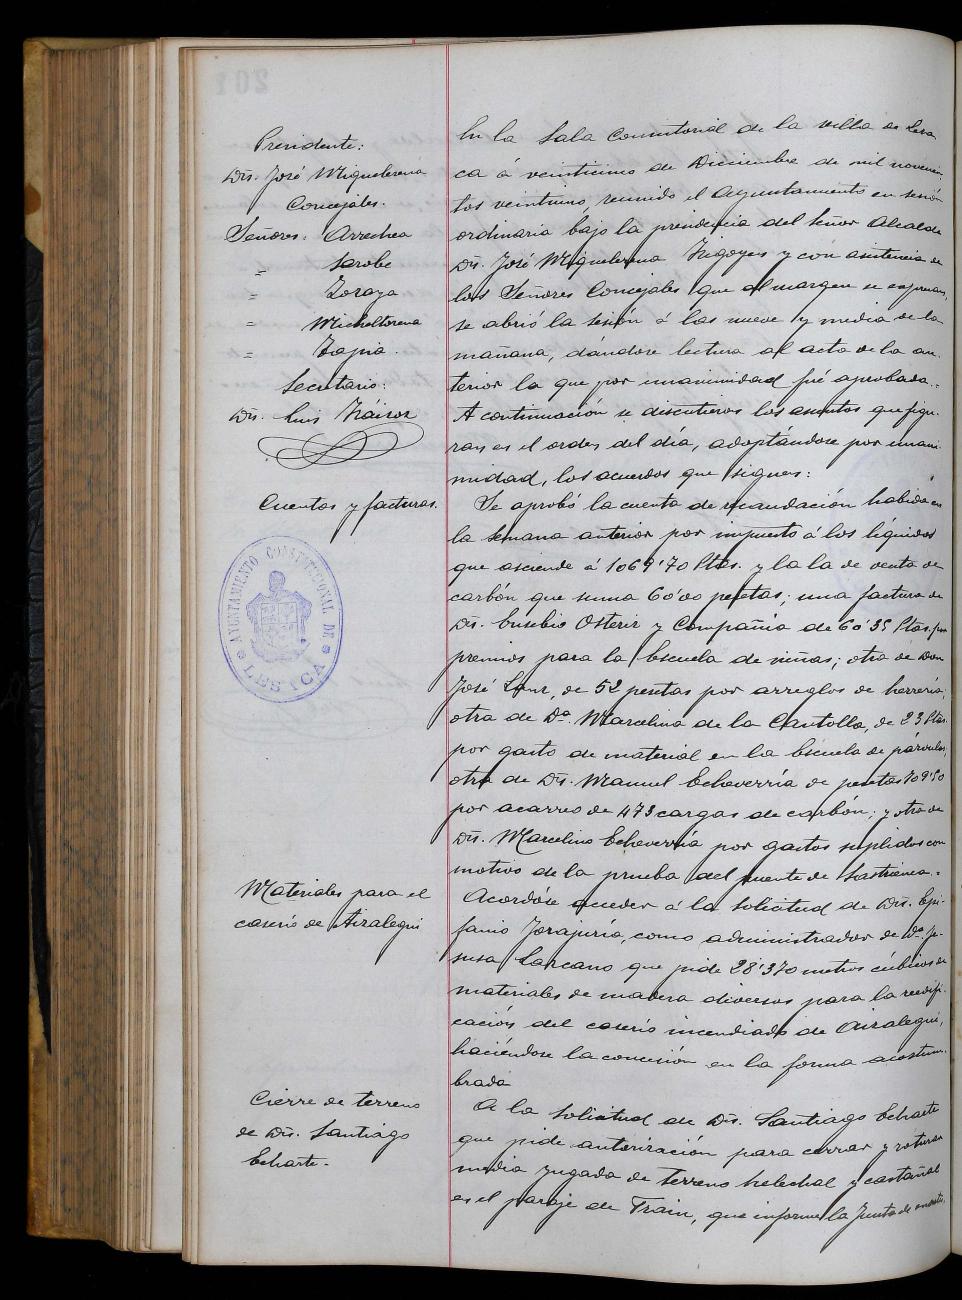 Presidente:
Dn. José Miguelerena
Concejales.
Señores: Arrechea
" Sarobe
" Zoraya
" Micheltorena
" Tapia.
Secretario:
Dn. Luis
Cuentas y facturas.
AYUNTAMIENTO CONSTITUCIONAL DE
LESACA
Materiales para el
caserío de Airalegui
Cierre de terreno
de Dn. Santiago
Echarte.
En la Sala Consistorial de la villa de Lesa
ca á veinticinco de Diciembre de mil novecien
tos veintiuno, reunido el Ayuntamiento en sesión
ordinaria bajo la presidencia del señor Alcalde
Dn. José Miguelerena Irigoyen y con asistencia de
los Señores Concejales que al margen se expresan,
se abrió la sesión á las nueve y media de la
mañana, dándose lectura al acta de la an-
terior la que por unanimidad fué aprobada.-
A continuación se discutieron los asuntos que figu-
ran en el orden del día, adoptándose por unani-
midad, los acuerdos que siguen:
Se aprobó la cuenta de recaudación habida en
la semana anterior por impuesto á los líquidos
que asciende á 1069'70 Ptas. y la la de venta de
carbón que suma 60'00 pesetas; una factura de
Dn. Eusebio Osteriz y Compañía de 60'35 Ptas. por
premios para la Escuela de niñas; otra de Don
José Sanz, de 52 pesetas por arreglos de herrería;
otra de Dª. Marcelina de la Cantolla, de 23 Ptas.
por gasto de material en la Escuela de párvulos;
otra de Dn. Manuel Echeverría de pesetas 709'50
por acarreo de 473 cargas de carbón; y otra de
Dn. Marcelino Echeverría por gastos suplidos con
motivo de la prueba del puente de
Acordóse acceder á la solicitud de Dn. Epi-
fanio Jorajuría, como administrador de Dª. Je-
susa Lazcano que pide 28'370 metros cúbicos de
materiales de madera diversos para la reedifi-
cación del caserío incendiado de Airalegui,
haciéndose la concesión en la forma acostum-
brada
A la solicitud de Dn. Santiago Echarte
que pide autorización para cerrar y roturar
media yugada de terreno helechal y castañal
en el paraje de Train, que informe la Junta de montes,